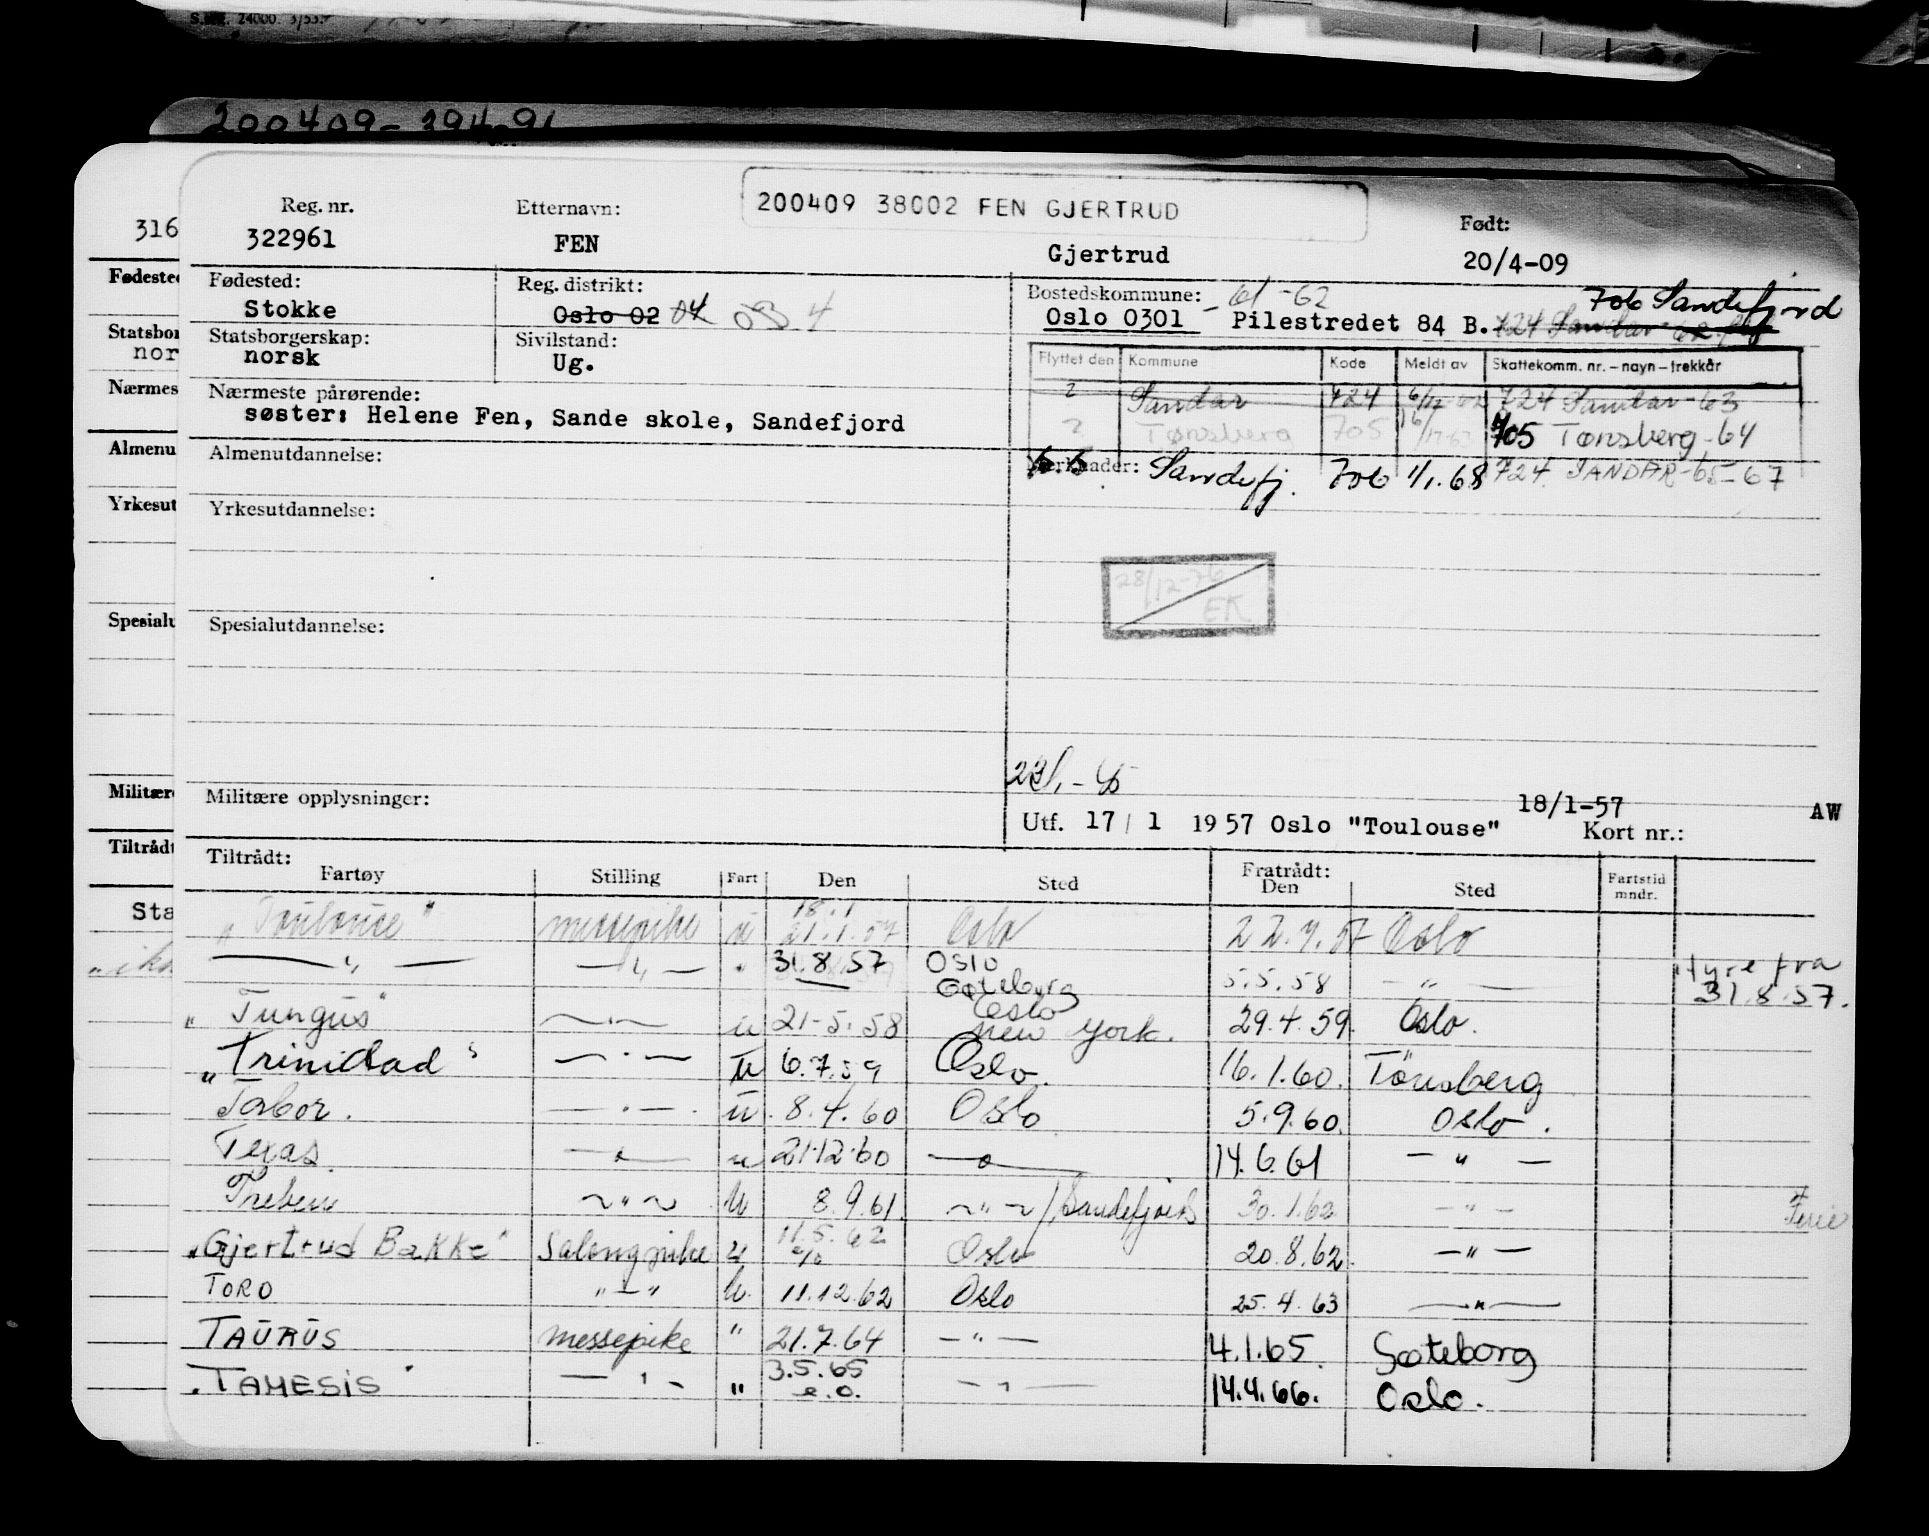 S.M.E. 24000. 3/53.
200409-394-91
200409 38002 FEN GJERTRUD
Reg. nr.
322961
Etternavn:
FEN
Gjertrud
Født:
20/4-09
316
Fødested:
Stokke
Reg. distrikt:
Oslo 02 04 03 4
Bostedskommune: -61-62
Oslo 0301 Pilestredet 84 B.
706 Sandefjord
724 Sandar 62
Statsborgerskap:
norsk
Sivilstand:
Ug.
Flyttet den Kommune Kode Meldt av Skattekomm. nr. – navn – trekkår
2 Sandar 724 724 Sandar-63
2 Tønsberg 705 705 Tønsberg-64
Merknader: Sandefj. 706 1/1.68 724 SANDAR-65-67
Nærmeste pårørende:
søster: Helene Fen, Sande skole, Sandefjord
Almenutdannelse:
Yrkesutdannelse:
28/12-76
EK
Spesialutdannelse:
Militære opplysninger:
18/1-57 AW
Utf. 17 / 1 1957 Oslo "Toulouse" Kort nr.:
Tiltrådt:
Fartøy Stilling Fart Den Sted
Fratrådt:
Den Sted Fartstid mndr.
"Toulouse" messepike u 18.1 21.1.57 Oslo 22.7.57 Oslo
— " — — " — " 31.8.57 Oslo Gøteborg 5.5.58 — " — hyre fra 31.8.57.
"Tungus" — " — u 21-5.58 Oslo New York. 29.4.59. Oslo.
"Trinidad" — " — u 6.7.59 Oslo. 16.1.60. Tønsberg
Tabor. — " — u. 8.4.60 Oslo 5.9.60. Oslo.
Texas. — " — u 21.12.60 — " — 14.6.61 — " —
Treben — " — u 8.9.61. — " — / Sandefjord 30.1.62 — " — Ferie
"Gjertrud Bakke" Salongpike u 11.5.62 Oslo 20.8.62. — " —
TORO " — " u. 11.12.62 Oslo 25.4.63 — " —
TAURUS messepike " 21.7.64 — " — 4.1.65. Gøteborg
"TAMESIS" — " — " 3.5.65 e.o. — " — 14.4.66. Oslo.